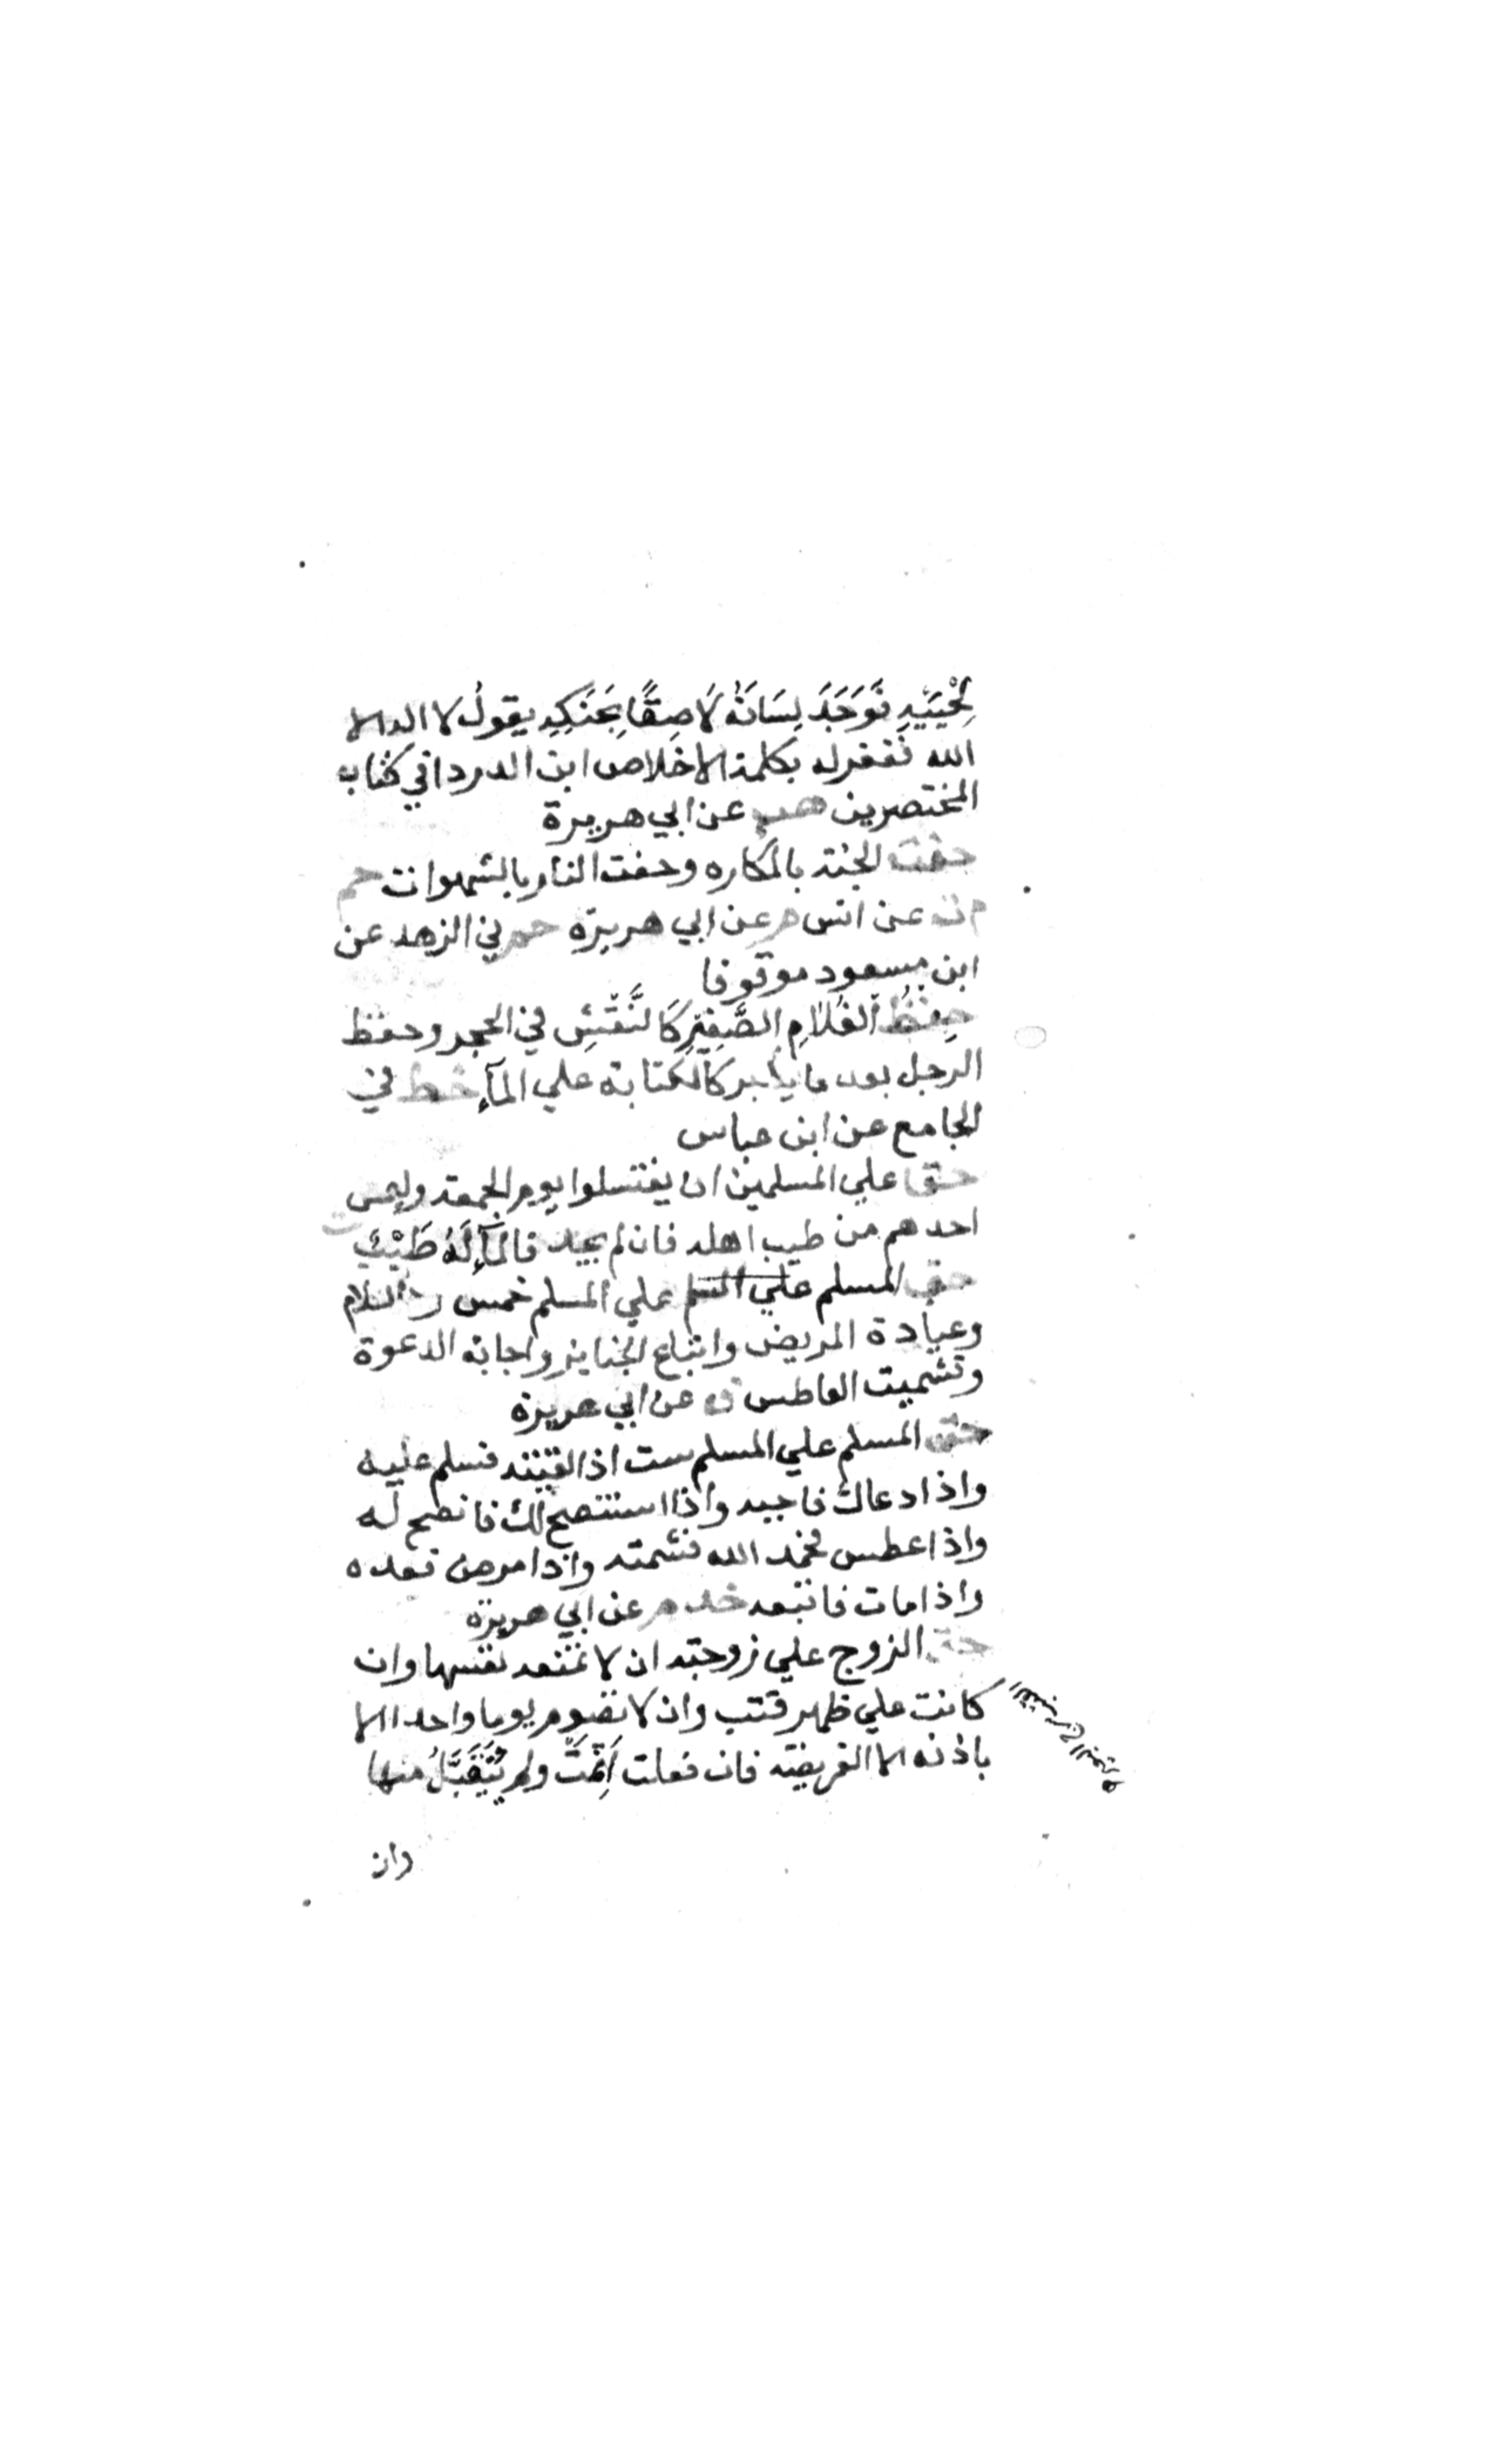 لِحْيَيْهِ فَوَجَدَ لِسَانَهُ لَاصِقًا بِحَنَكِهِ يقولُ لا اله الا
الله فغفر له بكلمة الاخلاص ابن الدردا في كتاب
المختصرين هب عن ابي هريرة
حفت الجنة بالمكاره وحفت النار بالشهوات حم
م ت عن انس م عن ابي هريرة حم في الزهد عن
ابن مسعود موقوفا
حِفْظُ الْغُلَامِ الصَّغِيْرِ كَالنَّقْشِ في الحجر وحفظ
الرجل بعد ما يكبر كالكتابة علي المآء خط في
الجامع عن ابن عباس
حقا علي المسلمين ان يغتسلوا يوم الجمعة وليمس
احدهم من طيب اهله فان لم يجد فالمآء لَهُ طَيْبٌ ت
حق المسلم علي المسلم خمس رد السلام
وعيادة المريض واتباع الجنايز واجابة الدعوة
وتشميت العاطس ق عن ابي هريرة
حق المسلم علي المسلم ست اذا لقيته فسلم عليه
واذا دعاك فاجبه واذا استنصح لك فانصح له
واذا عطس فحمد الله فشمته واذا مرض فعده
واذا مات فاتبعه خد م عن ابي هريرة
حق الزوج علي زوجته ان لا تمنعه نفسها وان
كانت علي ظهر قتب وان لا تصوم يوما واحدا الا
باذنه الا الفريضة فان فعلت اَثِمَتْ ولم يُتَقَبَّلُ منها
وان